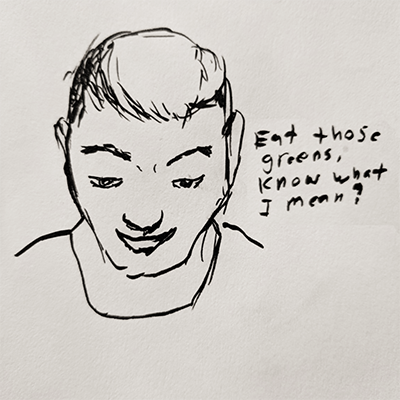 Eat those
greens,
Know what
I mean?